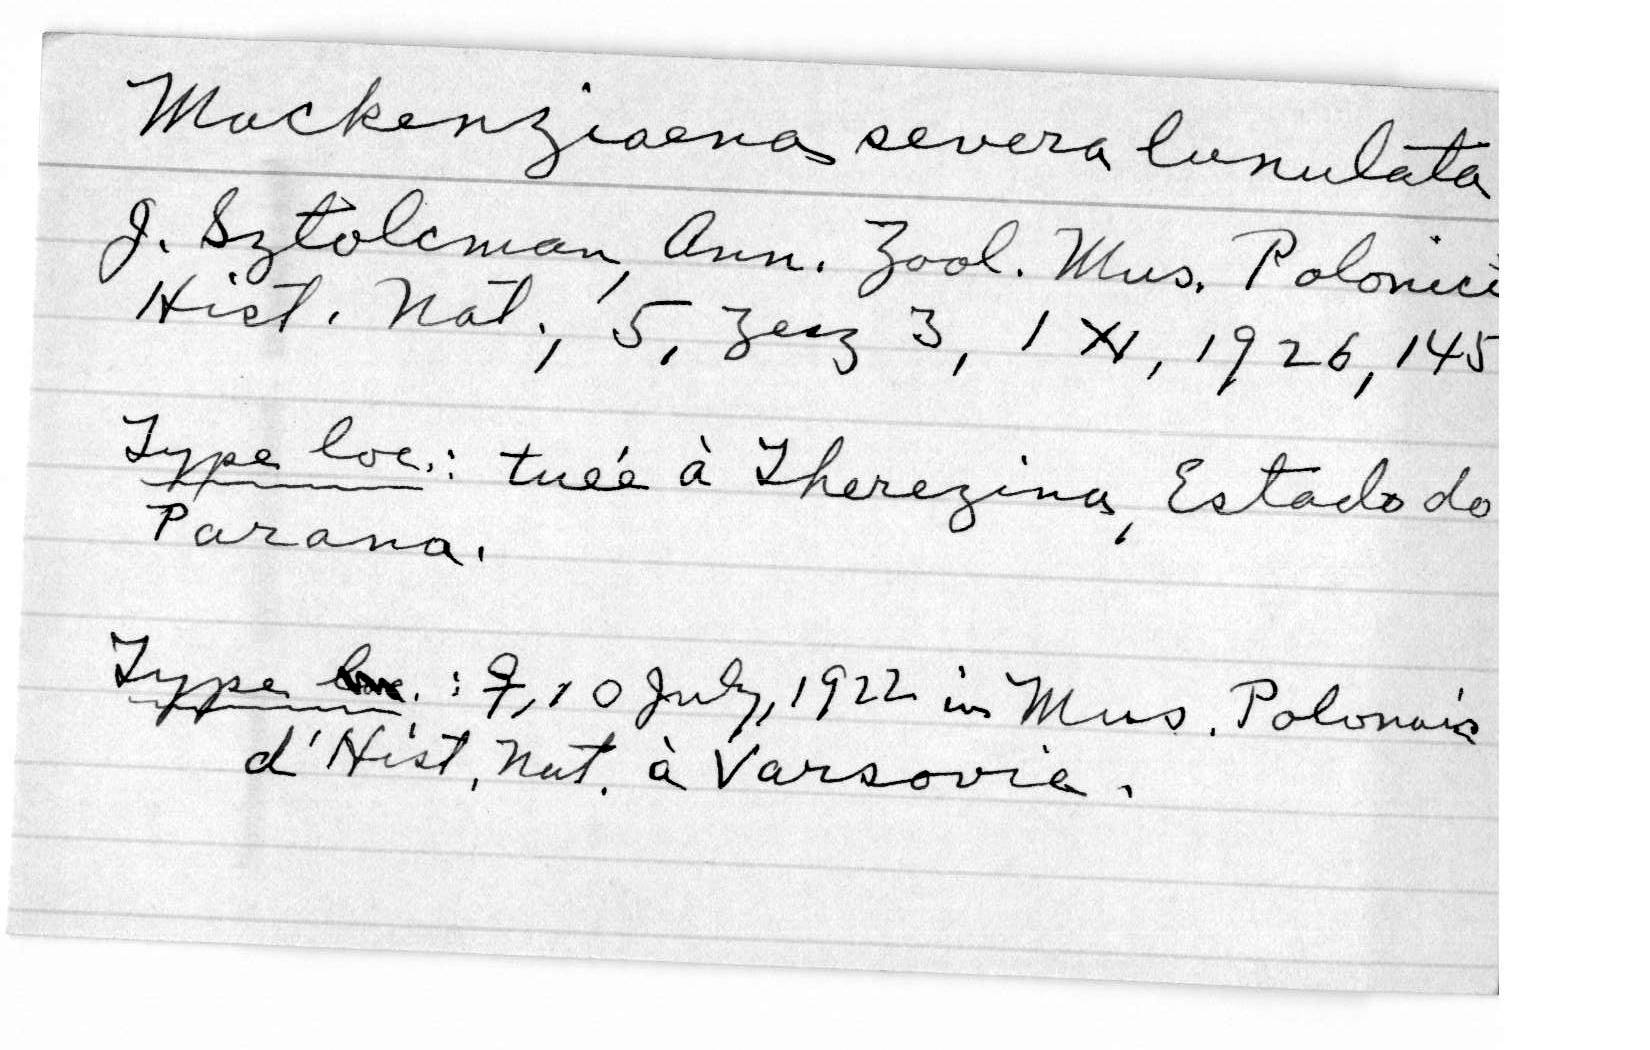 Mackenziaena severa lunulata
J. Sztolcman, Ann. Zool. Mus. Polonici
Hist. Nat., 5, Zesz 3, 1 XI, 1926, 145
Type loc.: tuée à Therezina, Estado do
Parana.
Type : ♀, 10 July, 1922 in Mus. Polonais
d'Hist. Nat. à Varsovie.